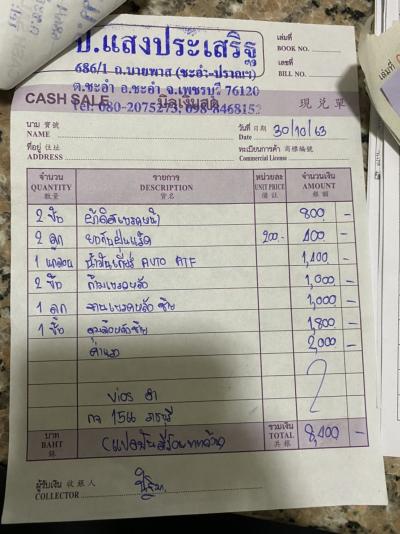 ป.แสงประเสริฐ
686/1 ถ.บายพาส (ชะอำ-ปราณฯ)
ต.ชะอำ อ.ชะอำ จ.เพชรบุรี 76120
Tel: 080-2075273, 098-8468152
CASH SALE บิลเงินสด 現兌單
เล่มที่
BOOK NO.
เลขที่
BILL NO.
นาม 寶號
NAME
วันที่ 日期
Date 30/10/63
ที่อยู่ 住址
ADDRESS
ทะเบียนการค้า 商標編號
Commercial License
จำนวน รายการ หน่วยละ จำนวนเงิน
QUANTITY DESCRIPTION UNIT PRICE AMOUNT
數量 貨名 備註 銀額
2 ข้าง ผ้าดิสเบรคหน้า 800 -
2 ลูก ยางกันฝุ่นแร็ค 200.- 400 -
1 แกลลอน น้ำมันเกียร์ AUTO ATF 1,400 -
2 ข้าง ก้ามเบรคหลัง 1,000 -
1 ลูก เบรคหลังซ้าย 1,000 -
1 ข้าง หลังซ้าย 1,800 -
ค่าแรง 2,000 -
Vios ดำ
กจ 1566 ราชบุรี
บาท
BAHT
銖
(แปดพันสี่ร้อยบาทถ้วน)
รวมเงิน
TOTAL 8,400 -
共銀
ผู้รับเงิน 收銀人
COLLECTOR